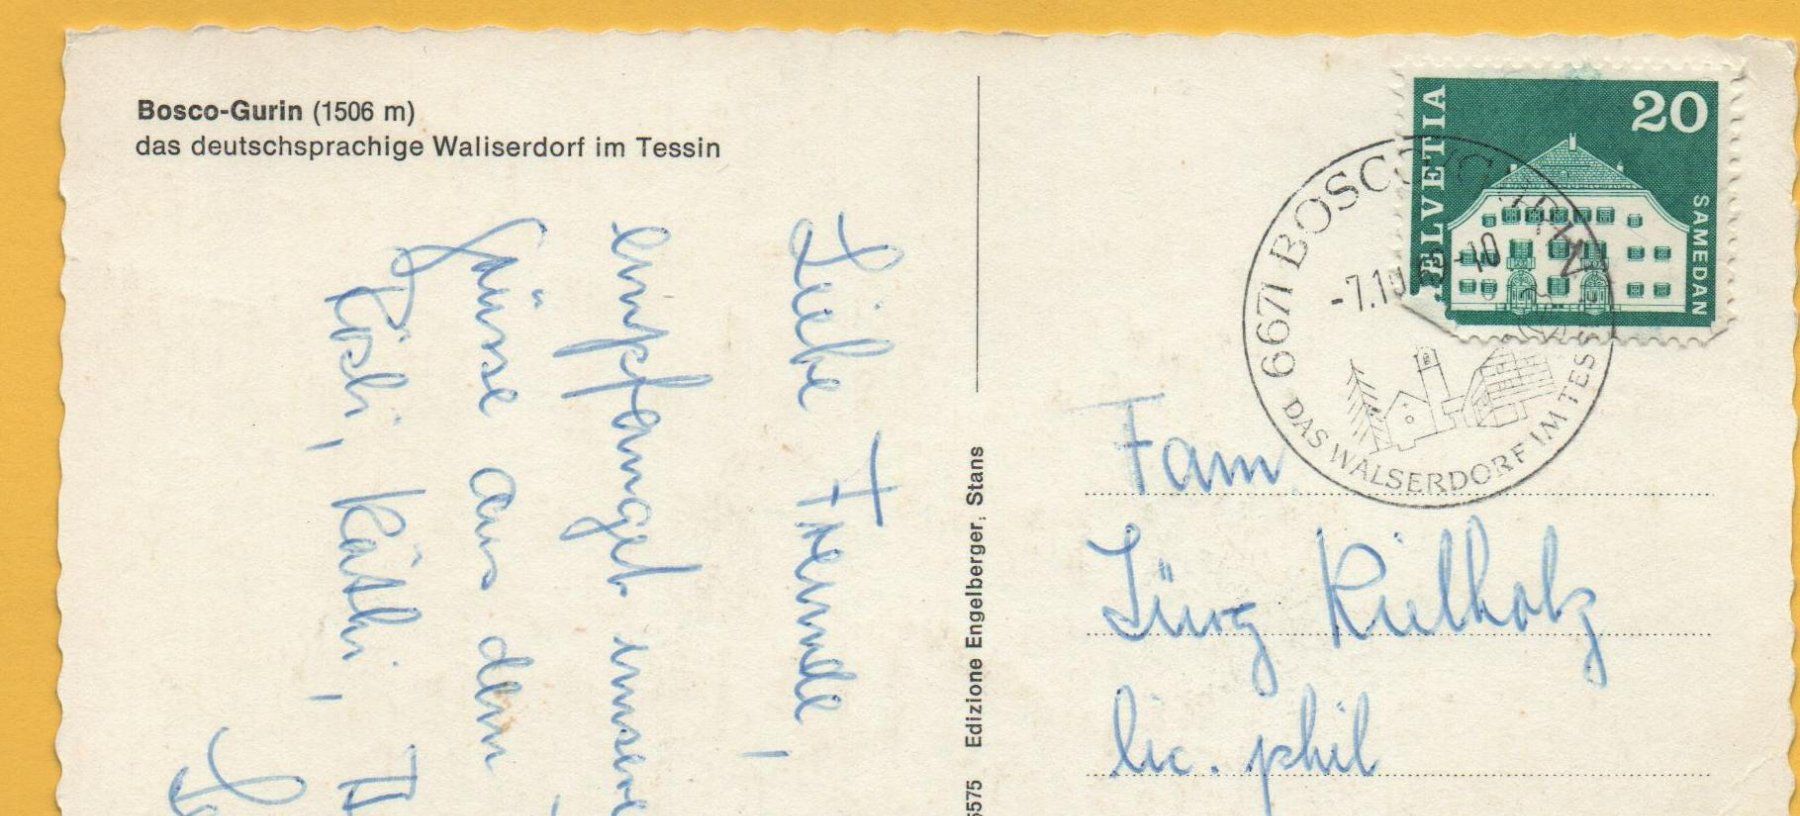 Bosco-Gurin (1506 m)
das deutschsprachige Waliserdorf im Tessin
Liebe Freunde,
empfanget unsere
Grüsse aus dem
Käthi,
Edizione Engelberger, Stans
5575
HELVETIA
20
SAMEDAN
6671 BOSCO/GURIN
-7.10
-10
DAS WALSERDORF IM TESSIN
Fam
Jürg Kielholz
lic. phil